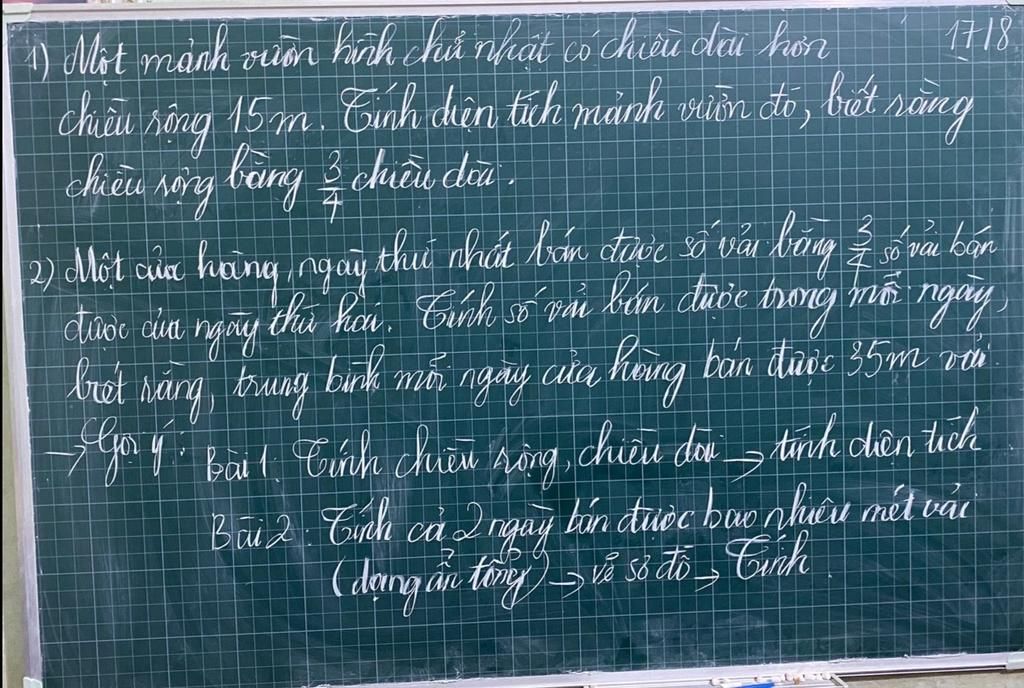 17/8
1) Một mảnh vườn hình chữ nhật có chiều dài hơn
chiều rộng 15m. Tính diện tích mảnh vườn đó, biết rằng
chiều rộng bằng 3/4 chiều dài.
2) Một cửa hàng, ngày thứ nhất bán được số vải bằng 3/4 số vải bán
được của ngày thứ hai. Tính số vải bán được trong mỗi ngày,
biết rằng, trung bình mỗi ngày cửa hàng bán được 35m vải.
→ Gợi ý: Bài 1: Tính chiều rộng, chiều dài → tính diện tích
Bài 2: Tính cả 2 ngày bán được bao nhiêu mét vải
(dạng ẩn tổng) → vẽ sơ đồ → Tính.